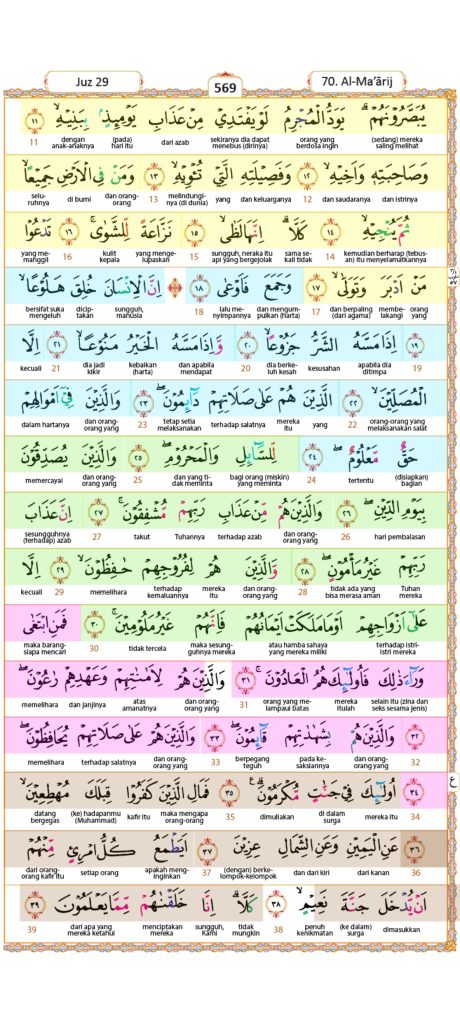 Juz 29
569
70. Al-Ma’ārij
يُبَصَّرُوْنَهُمْۗ يَوَدُّ الْمُجْرِمُ لَوْ يَفْتَدِيْ مِنْ عَذَابِ يَوْمِىِٕذٍۢ بِبَنِيْهِۙ ۝١١
dengan (pada) dari azab sekiranya dia dapat orang yang (sedang) mereka
11 anak-anaknya hari itu menebus (dirinya) berdosa ingin saling melihat
وَصَاحِبَتِهٖ وَاَخِيْهِۙ ۝١٢ وَفَصِيْلَتِهِ الَّتِيْ تُـْٔوِيْهِۙ ۝١٣ وَمَنْ فِى الْاَرْضِ جَمِيْعًاۙ
selu- di bumi dan orang- melindungi- yang dan keluarganya dan saudaranya dan istrinya
ruhnya orang 13 nya (di dunia) 12
ثُمَّ يُنْجِيْهِۙ ۝١٤ كَلَّاۗ اِنَّهَا لَظٰىۙ ۝١٥ نَزَّاعَةً لِّلشَّوٰىۚ ۝١٦ تَدْعُوْا
yang me- kulit yang menge- sungguh, neraka itu sama se- kemudian berharap (tebus-
manggil 16 kepala lupaskan 15 api yang bergejolak kali tidak 14 an) itu menyelamatkannya
مَنْ اَدْبَرَ وَتَوَلّٰىۙ ۝١٧ وَجَمَعَ فَاَوْعٰى ۝١٨ ۞ اِنَّ الْاِنْسَانَ خُلِقَ هَلُوْعًاۙ
bersifat suka dicip- sungguh, lalu me- dan mengum- dan berpaling membe- orang
mengeluh takan manusia 18 nyimpannya pulkan (harta) 17 (dari agama) lakangi yang
۝١٩ اِذَا مَسَّهُ الشَّرُّ جَزُوْعًاۙ ۝٢٠ وَّاِذَا مَسَّهُ الْخَيْرُ مَنُوْعًاۙ ۝٢١ اِلَّا
kecuali dia jadi kebaikan dan apabila dia berke- kesusahan apabila dia
21 kikir (harta) mendapat 20 luh kesah ditimpa 19
الْمُصَلِّيْنَۙ ۝٢٢ الَّذِيْنَ هُمْ عَلٰى صَلَاتِهِمْ دَاۤىِٕمُوْنَۖ ۝٢٣ وَالَّذِيْنَ فِيْٓ اَمْوَالِهِمْ
dalam hartanya dan orang- tetap setia terhadap salatnya mereka yang orang-orang yang
orang yang 23 melaksanakan itu 22 melaksanakan salat
حَقٌّ مَّعْلُوْمٌۖ ۝٢٤ لِّلسَّاۤىِٕلِ وَالْمَحْرُوْمِۖ ۝٢٥ وَالَّذِيْنَ يُصَدِّقُوْنَ
memercayai dan orang- dan yang ti- bagi orang (miskin) tertentu (disiapkan)
orang yang 25 dak meminta yang meminta 24 bagian
بِيَوْمِ الدِّيْنِۖ ۝٢٦ وَالَّذِيْنَ هُمْ مِّنْ عَذَابِ رَبِّهِمْ مُّشْفِقُوْنَۚ ۝٢٧ اِنَّ عَذَابَ
sesungguhnya takut Tuhannya terhadap azab mereka dan orang- hari pembalasan
(terhadap) azab 27 itu orang yang 26
رَبِّهِمْ غَيْرُ مَأْمُوْنٍۖ ۝٢٨ وَّالَّذِيْنَ هُمْ لِفُرُوْجِهِمْ حٰفِظُوْنَۙ ۝٢٩ اِلَّا
kecuali memelihara terhadap mereka dan orang- tidak ada yang Tuhan
29 kemaluannya itu orang yang 28 bisa merasa aman mereka
عَلٰٓى اَزْوَاجِهِمْ اَوْ مَا مَلَكَتْ اَيْمَانُهُمْ فَاِنَّهُمْ غَيْرُ مَلُوْمِيْنَۚ ۝٣٠ فَمَنِ ابْتَغٰى
maka barang- tidak tercela maka sesung- atau hamba sahaya terhadap istri-
siapa mencari 30 guhnya mereka yang mereka miliki istri mereka
وَرَاۤءَ ذٰلِكَ فَاُولٰۤىِٕكَ هُمُ الْعَادُوْنَۚ ۝٣١ وَالَّذِيْنَ هُمْ لِاَمٰنٰتِهِمْ وَعَهْدِهِمْ رَاعُوْنَۖ
memelihara dan janjinya atas dan orang- orang yang me- mereka selain itu (zina dan
amanatnya orang yang 31 lampaui batas itulah seks sesama jenis)
۝٣٢ وَالَّذِيْنَ هُمْ بِشَهٰدٰتِهِمْ قَاۤىِٕمُوْنَۖ ۝٣٣ وَالَّذِيْنَ هُمْ عَلٰى صَلَاتِهِمْ يُحَافِظُوْنَۖ
memelihara terhadap salatnya dan orang- berpegang pada ke- dan orang-
orang yang 33 teguh saksiannya orang yang 32
۝٣٤ اُولٰۤىِٕكَ فِيْ جَنّٰتٍ مُّكْرَمُوْنَۗ ۝٣٥ فَمَالِ الَّذِيْنَ كَفَرُوْا قِبَلَكَ مُهْطِعِيْنَۙ
datang (ke) hadapanmu kafir itu maka mengapa dimuliakan di dalam mereka itu
bergegas (Muhammad) orang-orang 35 surga 34
۝٣٦ عَنِ الْيَمِيْنِ وَعَنِ الشِّمَالِ عِزِيْنَ ۝٣٧ اَيَطْمَعُ كُلُّ امْرِئٍ مِّنْهُمْ
dari orang- setiap orang apakah meng- (dengan) berke- dan dari kiri dari kanan
orang kafir itu inginkan 37 lompok-kelompok 36
اَنْ يُّدْخَلَ جَنَّةَ نَعِيْمٍۙ ۝٣٨ كَلَّاۗ اِنَّا خَلَقْنٰهُمْ مِّمَّا يَعْلَمُوْنَ ۝٣٩
dari apa yang menciptakan sungguh, tidak penuh (ke dalam) dimasukkan
39 mereka ketahui mereka Kami mungkin 38 kenikmatan surga